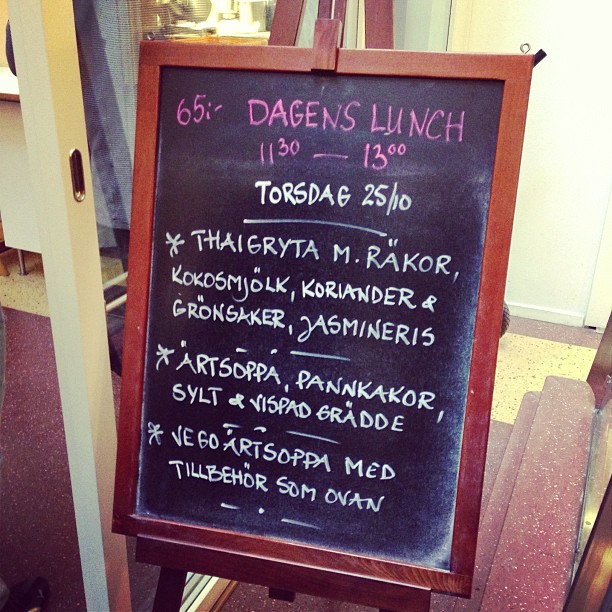 65:- DAGENS LUNCH
11³⁰ — 13⁰⁰
TORSDAG 25/10
* THAIGRYTA M. RÄKOR,
KOKOSMJÖLK, KORIANDER &
GRÖNSAKER, JASMINERIS
* ÄRTSOPPA, PANNKAKOR,
SYLT & VISPAD GRÄDDE
* VEGOÄRTSOPPA MED
TILLBEHÖR SOM OVAN